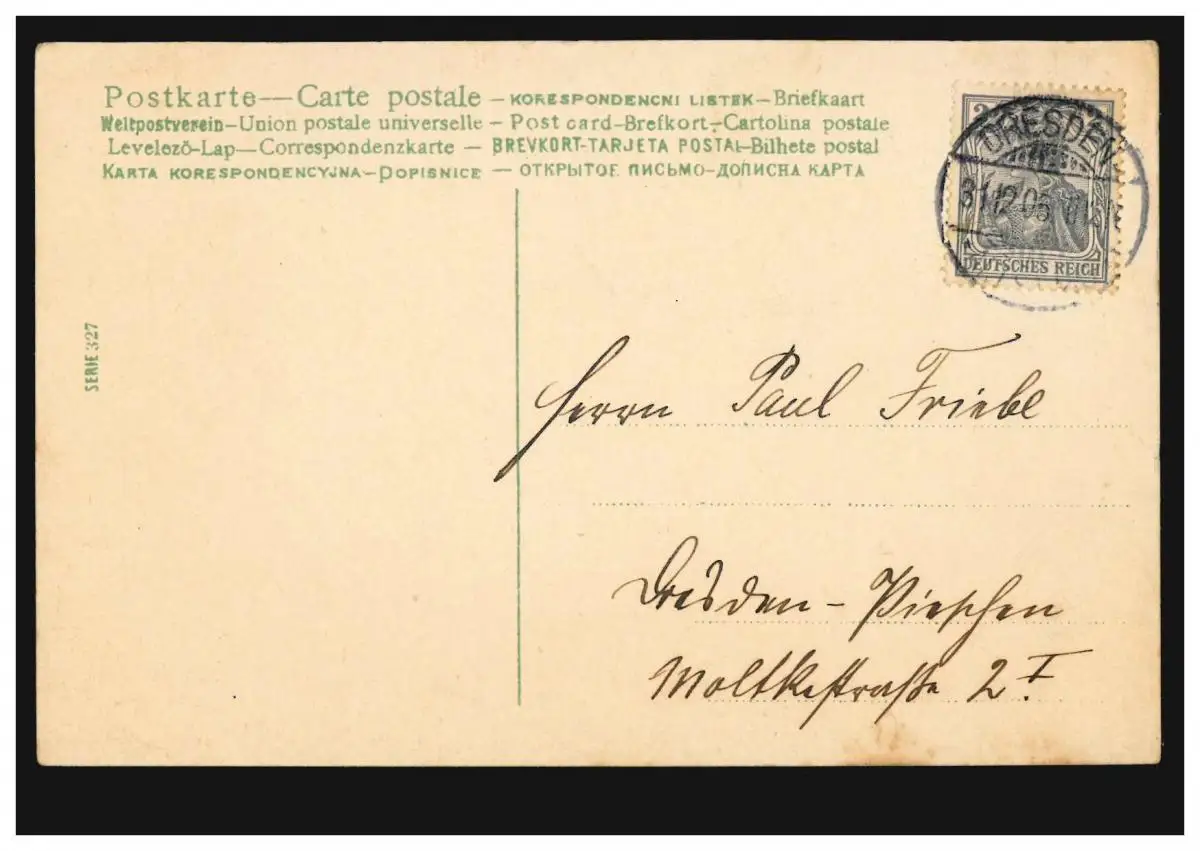 Postkarte — Carte postale – KORESPONDENCNI LISTEK – Briefkaart
Weltpostverein – Union postale universelle – Post card – Brefkort – Cartolina postale
Levelező-Lap — Correspondenzkarte – BREVKORT – TARJETA POSTAL – Bilhete postal
KARTA KORESPONDENCYJNA – DOPISNICE – ОТКРЫТОЕ ПИСЬМО – ДОПИСНА КАРТА
2
DRESDEN
31.12.05
DEUTSCHES REICH
SERIE 327
Herrn Paul Friebe
Dresden – Pieschen
Moltkestraße 2 I